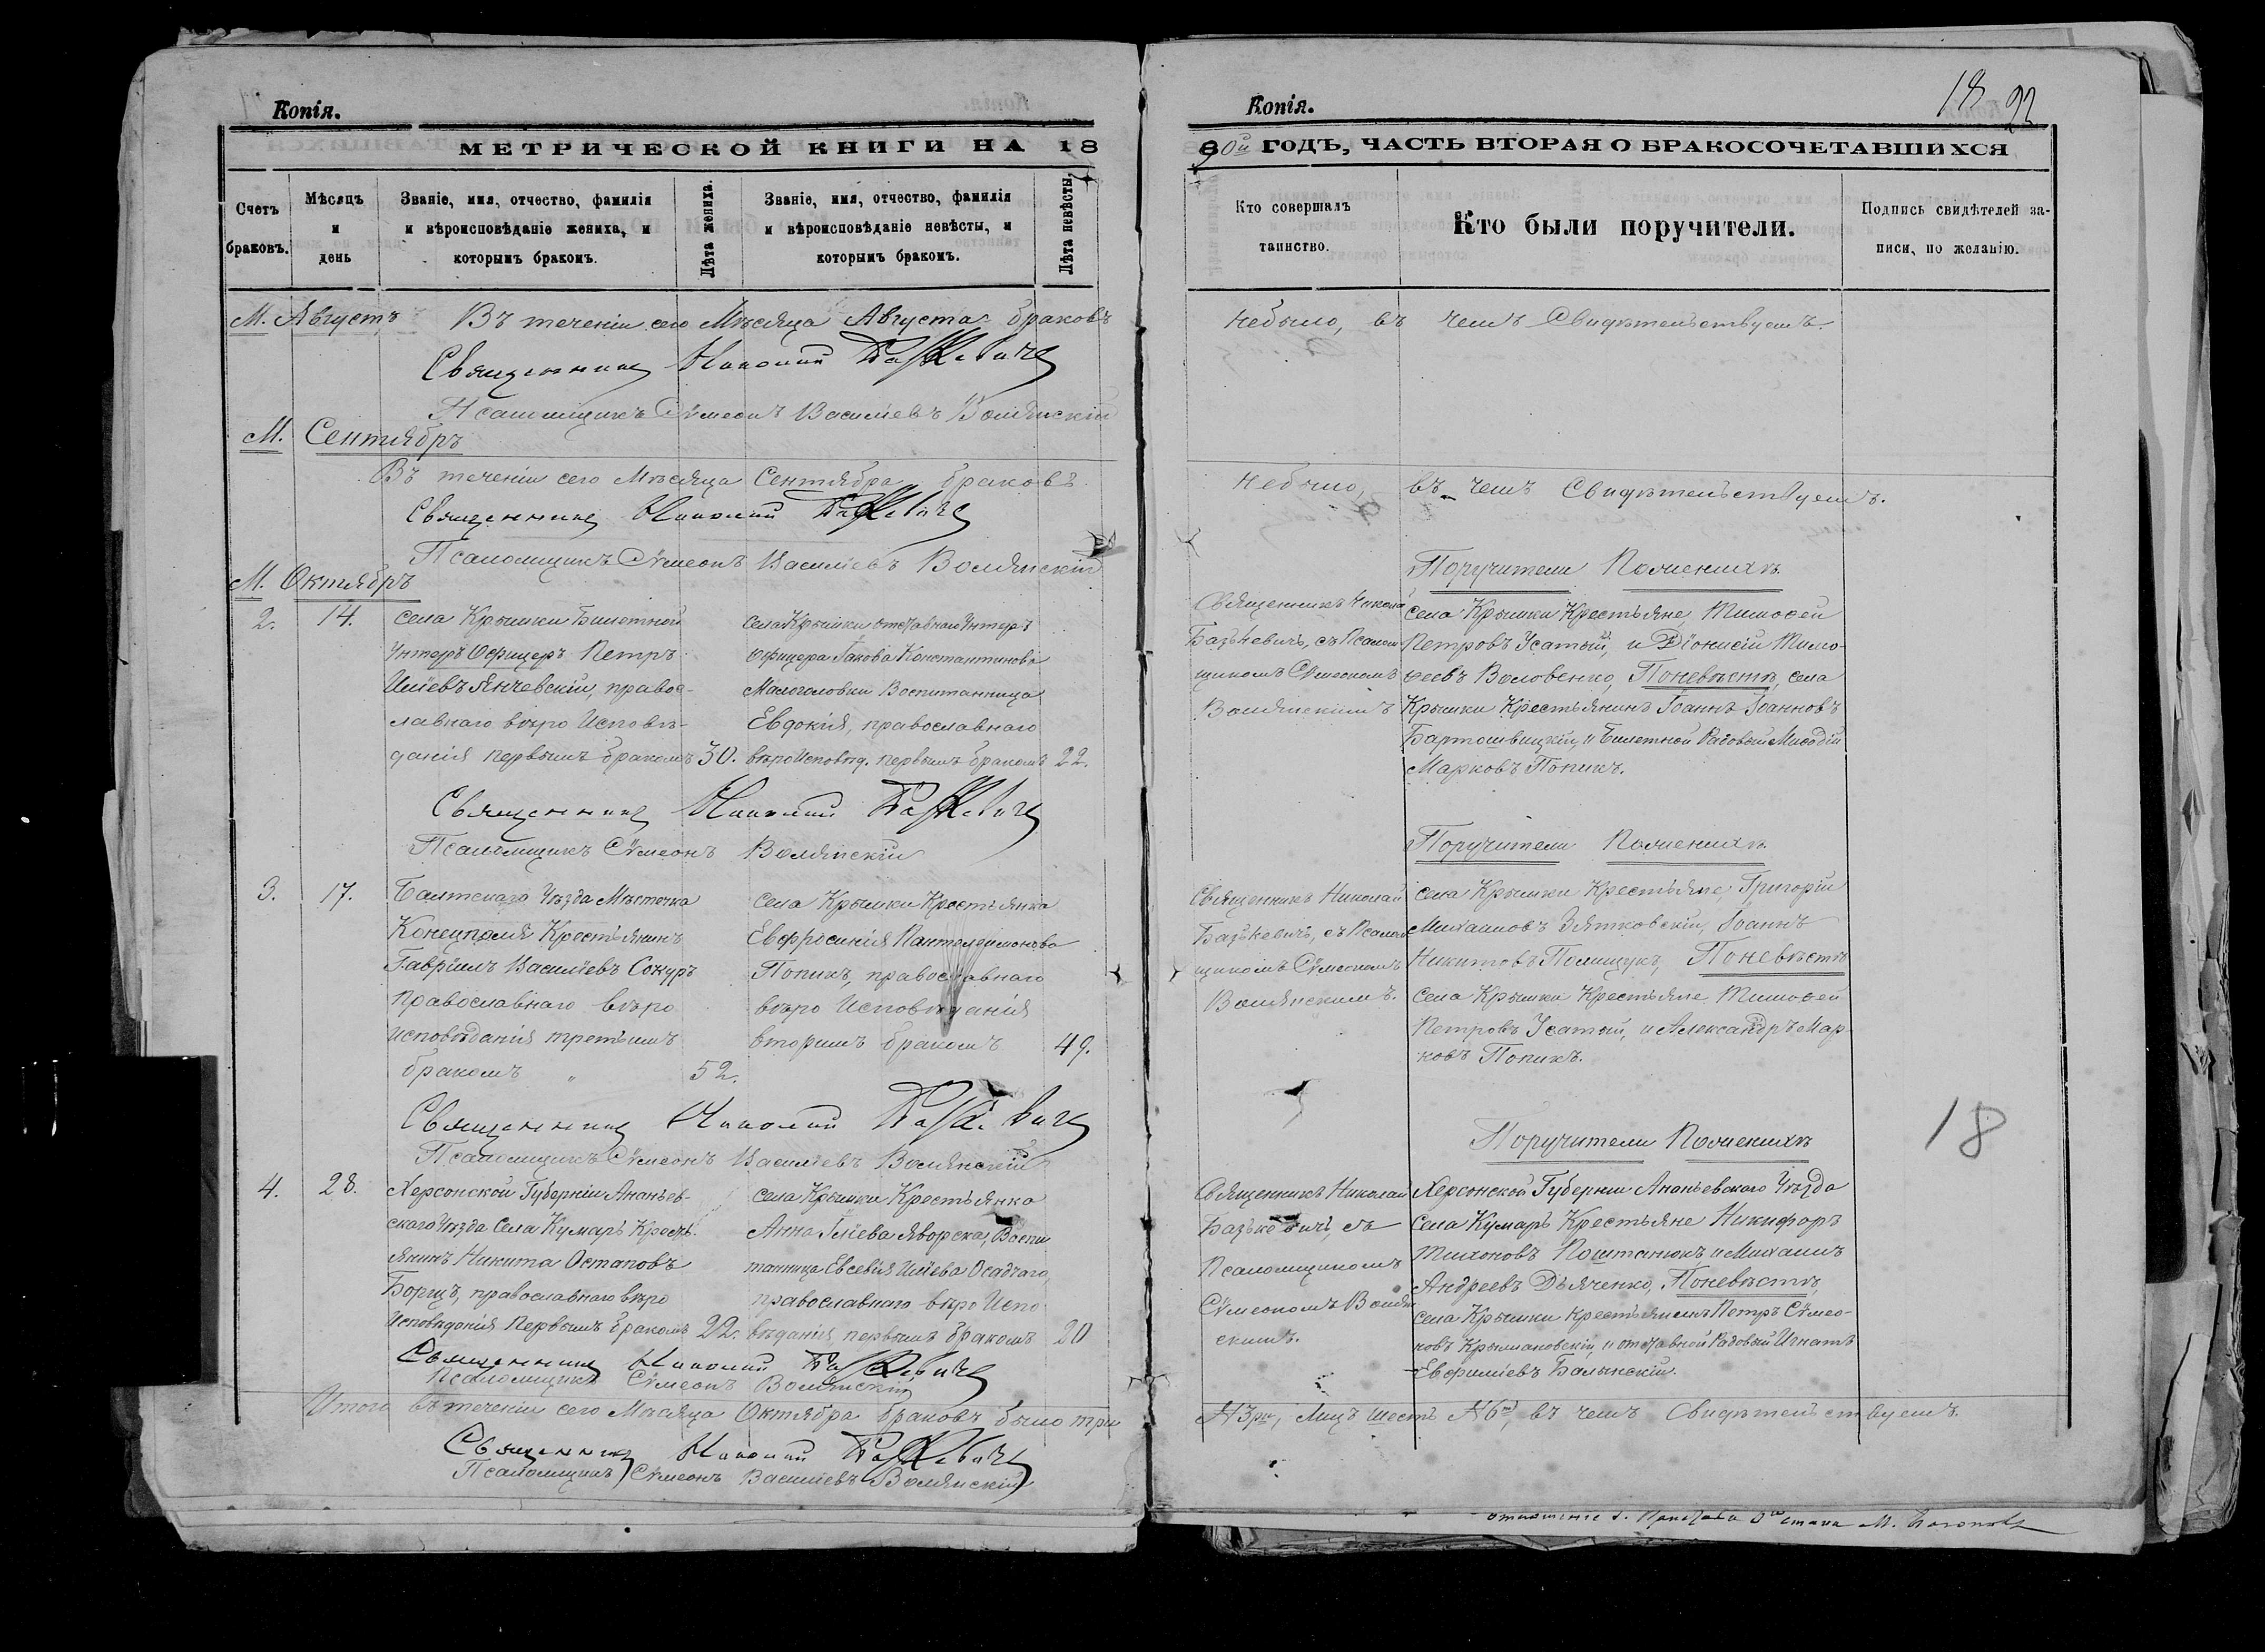 Копія.
МЕТРИЧЕСКОЙ КНИГИ НА 18
Счетъ браковъ.
Мѣсяцъ и день
Званіе, имя, отчество, фамилія и вѣроисповѣданіе жениха, и которымъ бракомъ.
Лѣта жениха.
Званіе, имя, отчество, фамилія и вѣроисповѣданіе невѣсты, и которымъ бракомъ.
Лѣта невѣсты.
М. Августъ
Въ теченіи сего Мѣсяца Августа браковъ
Священникъ Николай Базькевичъ
Псаломщикъ Сѵмеонъ Василіевъ Волянскій
М. Сентябръ
Въ теченіи сего Мѣсяца Сентября браковъ
Священникъ Николай Базькевичъ
Псаломщикъ Сѵмеонъ Василіевъ Волянскій
М. Октябръ
2.
14.
села Крымки Билетной
Унтеръ Офицеръ Петръ
Иліевъ Янчевскій, право-
славнаго вѣро Исповѣ-
данія первымъ бракомъ
30.
села Крымки отставнаго Унтеръ
Офицера Іакова Константинова
Малоголовки Воспитанница
Евдокія, православнаго
вѣро Исповѣд. первымъ бракомъ
22.
Священникъ Николай Базькевичъ
Псаломщикъ Сѵмеонъ Волянскій
3.
17.
Балтскаго Уѣзда Мѣстечка
Конецполя Крестьянинъ
Гавріилъ Василіевъ Сокуръ
Православнаго вѣро
исповѣданія третьимъ
бракомъ „
52.
Села Крымки Крестьянка
Евфросинія Пантелеимонова
Попикъ, православнаго
вѣро Исповѣданія
вторымъ бракомъ
49.
Священникъ Николай Базькевичъ
Псаломщикъ Сѵмеонъ Василіевъ Волянскій
4.
28.
Херсонской Губерніи Ананьев-
скаго Уѣзда Села Кумаръ Кресть-
янинъ Никита Остаповъ
Борщъ, православнаго вѣро
Исповѣданія Первымъ бракомъ
22.
села Крымки Крестьянка
Анна Іліева Яворска, Воспи
танница Евсевія Иліева Осадчаго,
православнаго вѣро Испо
вѣданія первымъ бракомъ
20
Священникъ Николай Базькевичъ
Псаломщикъ Сѵмеонъ Волянскій
Итого въ теченіи сего Мѣсяца Октября браковъ было три
Священникъ Николай Базькевичъ
Псаломщикъ Сѵмеонъ Василіевъ Волянскій
Копія.
18 22
90й ГОДЪ, ЧАСТЬ ВТОРАЯ О БРАКОСОЧЕТАВШИХСЯ
Кто совершалъ таинство.
Кто были поручители.
Подпись свидѣтелей записи, по желанію.
небыло, въ чемъ Свидѣтельствуемъ.
небыло, въ чемъ Свидѣтельствуемъ.
Священникъ Николай
Базькевичъ, съ Псалом
щикомъ Сѵмеономъ
Волянскимъ
Поручители Поженихѣ
села Крымки Крестьяне, Тимоѳей
Петровъ Усатый, и Діонисій Тимо-
ѳеевъ Воловенко, Поневѣстѣ, села
Крымки Крестьянинъ Іоаннъ Іоанновъ
Бартошвицкій, и Билетной Рядовой Миѳодій
Марковъ Попикъ.
Священникъ Николай
Базькевичъ, съ Псалом
щикомъ Сѵмеономъ
Волянскимъ.
Поручители Поженихѣ
села Крымки Крестьяне, Григорій
Михаиловъ Зятковскій, Іоаннъ
Никитовъ Полищукъ, Поневѣстѣ
села Крымки Крестьяне, Тимоѳей
Петровъ Усатый, и Александръ Мар-
ковъ Попикъ.
18
Священникъ Николай
Базькевичъ, съ
Псаломщикомъ
Сѵмеономъ Волян
скимъ.
Поручители Поженихѣ
Херсонской Губерніи Ананьевскаго Уѣзда
Села Кумаръ Крестьяне Никифоръ
Тихоновъ Поштанюкъ и Михаилъ
Андреевъ Дьяченко, Поневѣстѣ,
села Крымки Крестьянинъ Петръ Сѵмео-
новъ Крыжановскій, и отставной Рядовой Игнатъ
Евфиміевъ Балынскій.
№3ри, Лицъ шесть №6ть, въ чемъ Свидѣтельствуемъ.